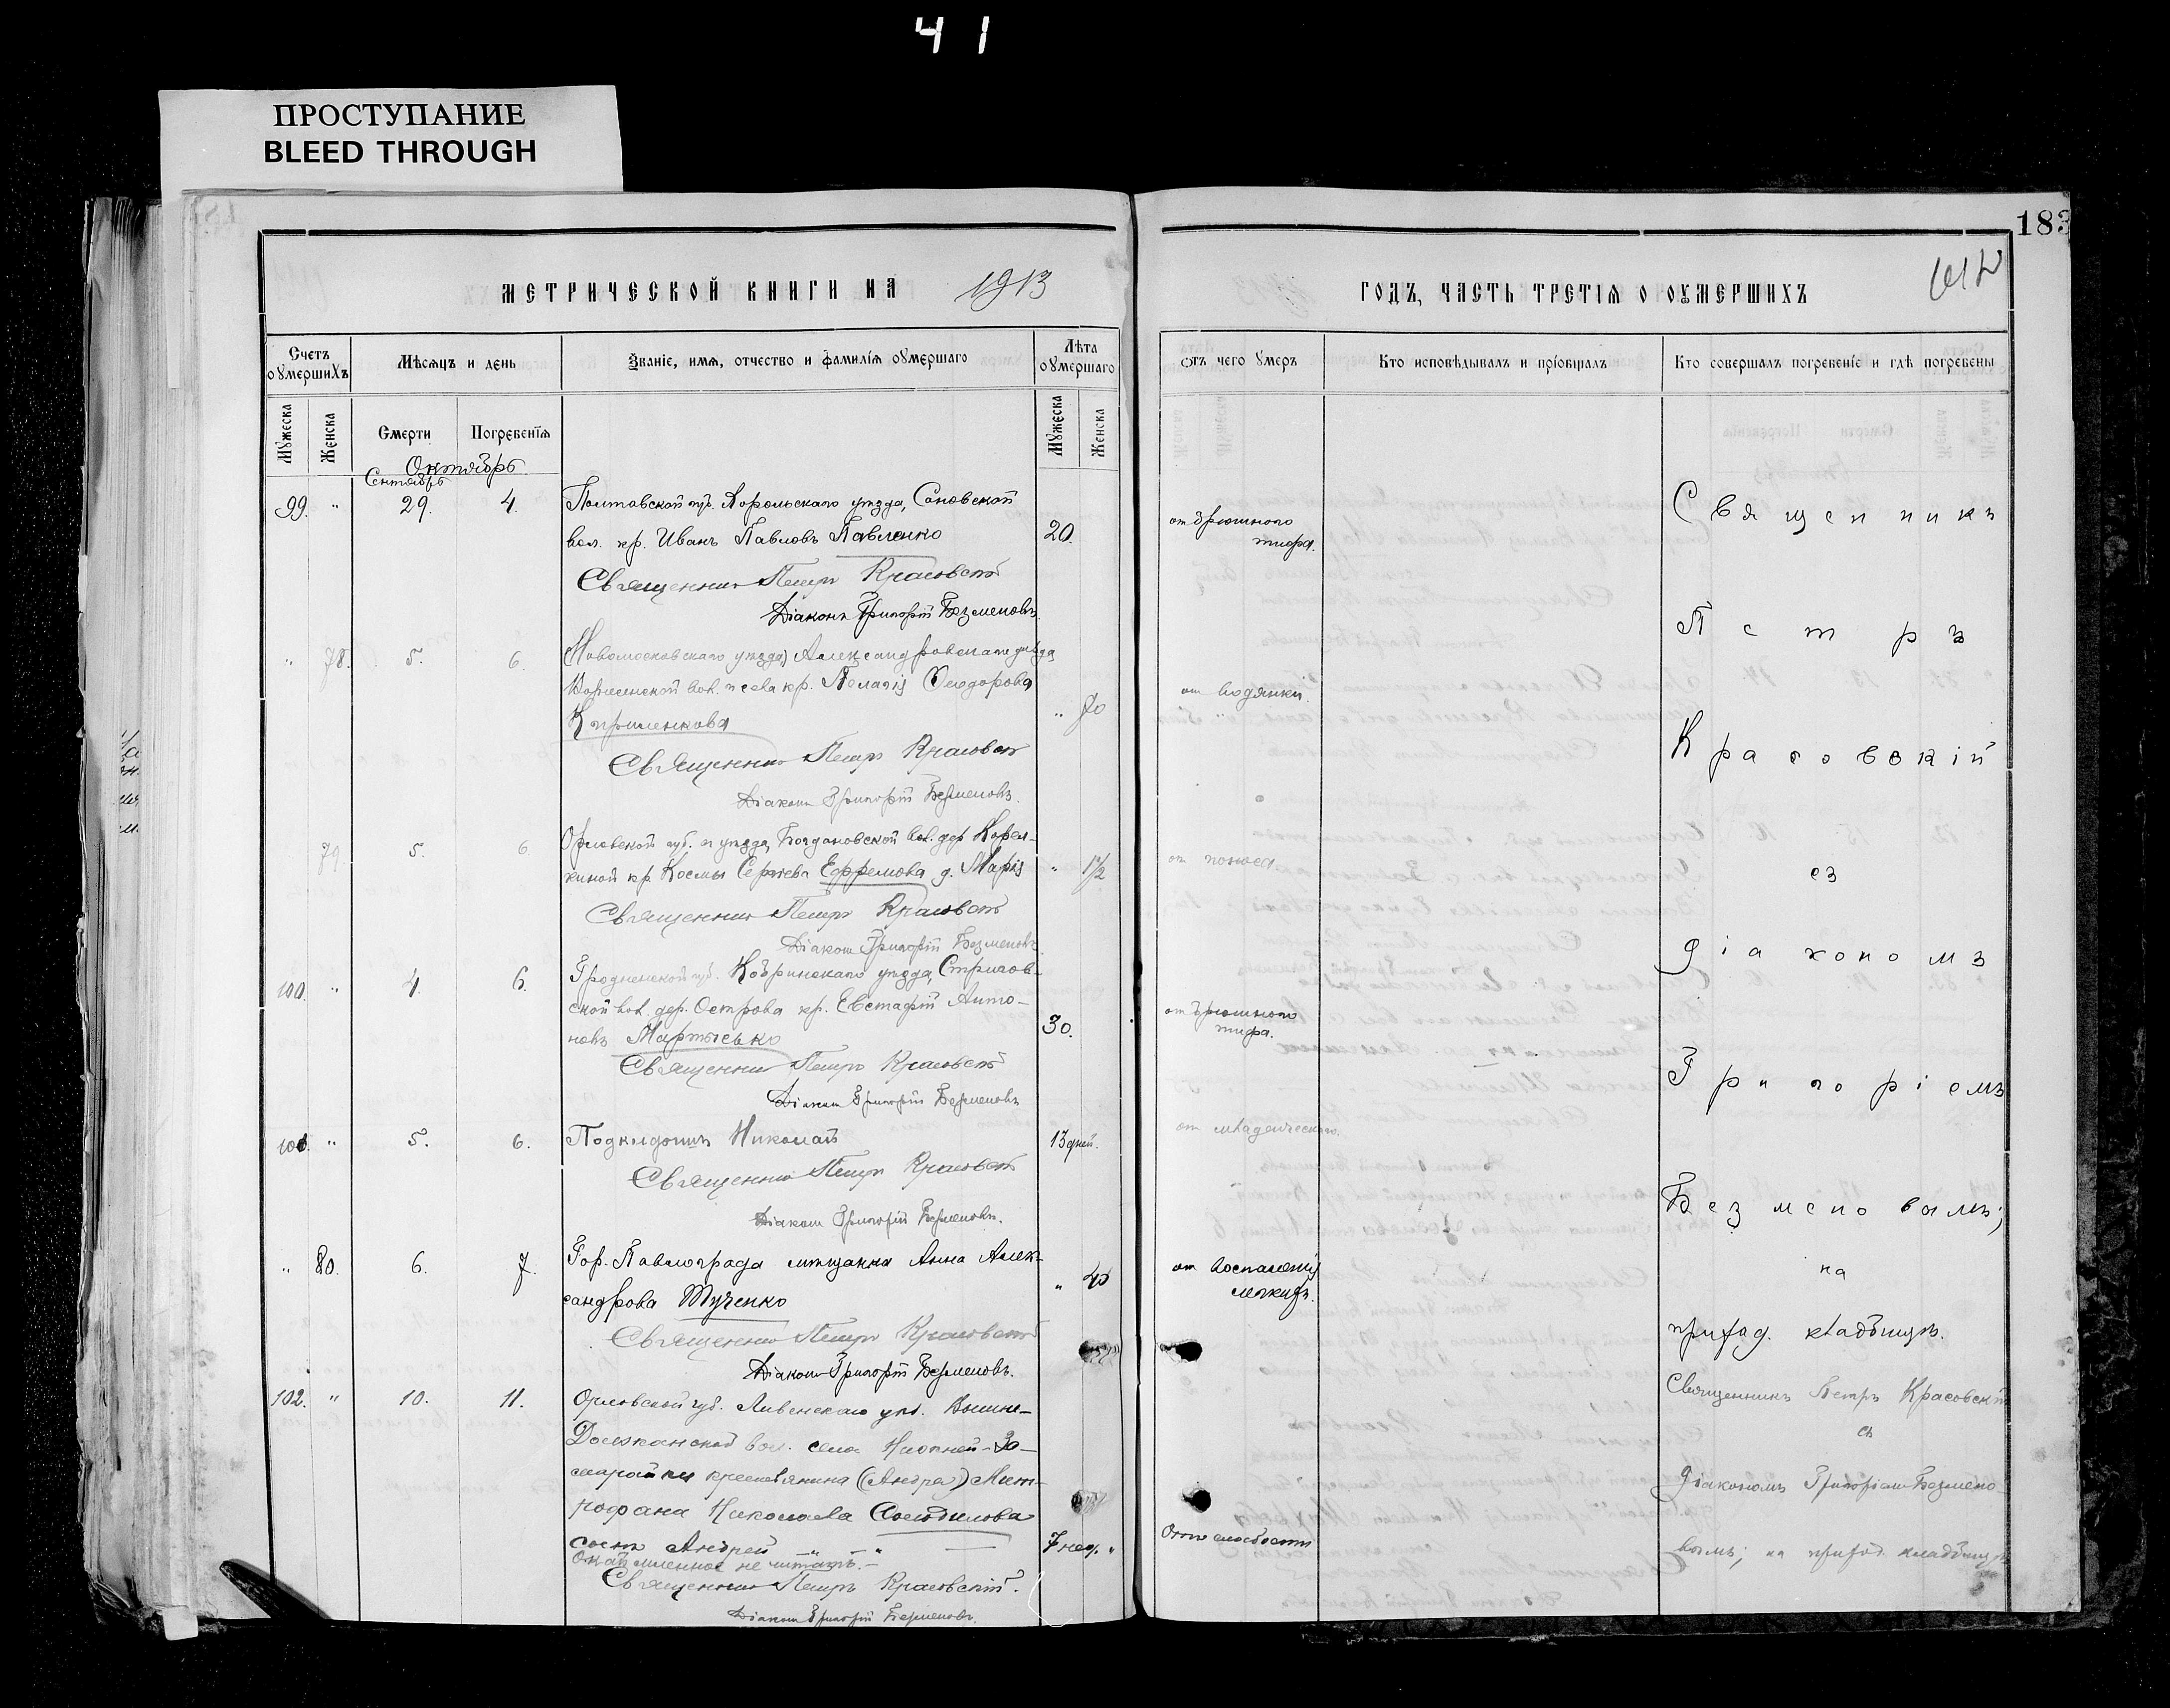 41
ПРОСТУПАНИЕ
BLEED THROUGH
183
МЕТРИЧЕСКОЙ КНИГИ НА 1913
ГОДЪ, ЧАСТЬ ТРЕТІЯ О ОУМЕРШИХЪ
Счетъ оумершихъ
Мѣсяцъ и день
Званіе, имя, отчество и фамилія оумершаго
Лѣта оумершаго
Отъ чего умеръ
Кто исповѣдывалъ и пріобщалъ
Кто совершалъ погребеніе и гдѣ погребены
Мужеска
Женска
Смерти
Погребенія
Мужеска
Женска
Октябрь
Сентябрь
99. " 29. 4. Полтавской губ. Хорольскаго уѣзда,
вол. кр. Иванъ Павловъ Павленко 20. от брюшного
тифа.
Священникъ Петръ Красовскій
Діаконъ Григорій Безменовъ
" 78. 5. 6. Новомосковскаго уѣзда, Александровскаго уѣзда,
вол. и села кр. Пелагія Ѳеодорова от водянки.
" 70
Священникъ Петръ Красовскій
Діаконъ Григорій Безменовъ.
79. 5. 6. Орловской губ. и уѣзда, Богдановской вол. дер. Корел-
киной кр. Космы Сергѣева Ефремова д. Марія " 1½ от поноса
Священникъ Петръ Красовскій
Діаконъ Григорій Безменовъ
100. " 4. 6. Гродненской губ. Кобринскаго уѣзда, Стригов-
ской вол. дер. Острова кр. Евстафій Анто-
новъ Мартысько 30. от брюшного
тифа.
Священникъ Петръ Красовскій
Діаконъ Григорій Безменовъ
101. " 5. 6. Подкидышъ Николай 13 дней. от младенческаго.
Священникъ Петръ Красовскій
Діаконъ Григорій Безменовъ.
" 80. 6. 7. Гор. Павлограда мѣщанка Анна Алек-
сандрова " 40 от воспаленія
легкихъ.
Священникъ Петръ Красовскій
Діаконъ Григорій Безменовъ.
102. " 10. 11. Орловской губ. Ливенскаго уѣз. Вышне-
Должанской вол. села
крестьянина (Андрея) Мит-
рофана Николаева
сынъ Андрей " " 7 нед. " Отъ слабости
Окаймленное не читать.-
Священникъ Петръ Красовскій.
Діаконъ Григорій Безменовъ.
Священникъ
Петръ
Красовскій
съ
діакономъ
Григоріемъ
Безменовымъ;
на
приход. кладбищѣ.
Священникъ Петръ Красовскій
съ
діакономъ Григоріемъ Безмено-
вымъ; на приход. кладбищѣ